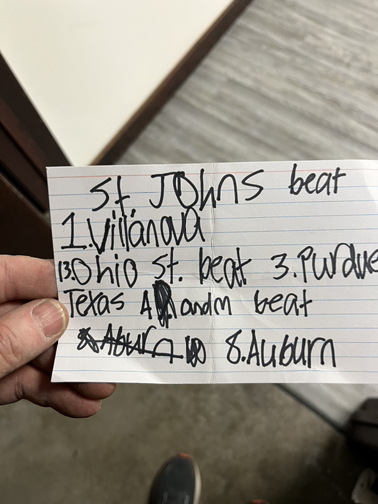 St Johns beat
1. Villanova
13. Ohio St. beat 3. Purdue
Texas A and m beat
8. Auburn